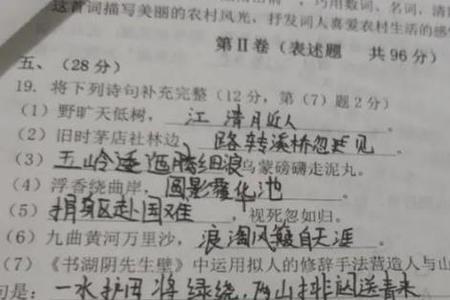 这首词描写美丽的农村风光，抒发词人喜爱农村生活的感
第Ⅱ卷（表述题 共96分）
五、（28分）
19. 将下列诗句补充完整（12分，第（7）题2分）
（1）野旷天低树，江清月近人。
（2）旧时茅店社林边，路转溪桥忽见。
（3）五岭逶迤腾细浪，乌蒙磅礴走泥丸。
（4）浮香绕曲岸，圆影覆华池。
（5）捐躯赴国难，视死忽如归。
（6）九曲黄河万里沙，浪淘风簸自天涯。
（7）《书湖阴先生壁》中运用拟人的修辞手法营造人与山
句是：一水护田将绿绕，两山排闼送青来